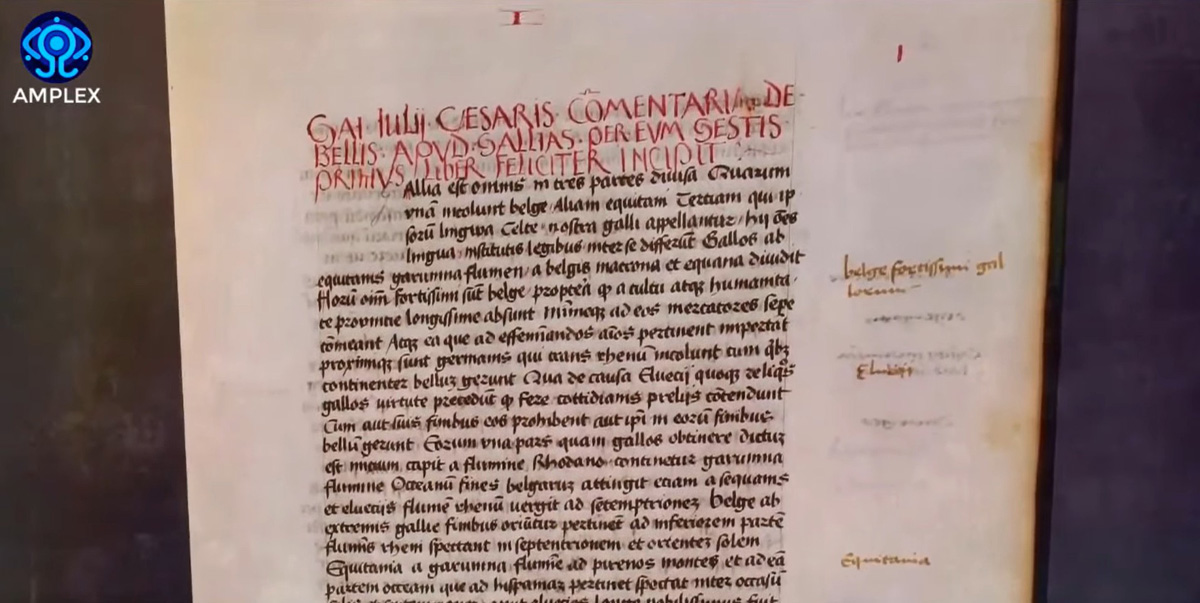 AMPLEX
I
1
GAI IULII CESARIS COMENTARIA DE
BELLIS APVD GALLIAS PER EVM GESTIS
PRIMVS LIBER FELICITER INCIPIT
Allia est omnis in tres partes diuisa Quarum
vnā incolunt belge Aliam equitani Tertiam qui ip
sorū lingwa Celte nostra galli appellantur hij oēs
lingua institutis legibus inter se differūt Gallos ab
equitanis garumna flumen a belgis matrona et equana diuidit
Horū oīm fortissimi sūt belge propterea q a cultu atq humanita
te prouintie longissime absunt Minimeq ad eos mercatores sepe
cōmeant Atq ea que ad effeminandos aīos pertinent important
proximiq sunt germanis qui trans rhenū incolunt cum qbz
continenter belluz gerunt Qua de causa Eluecij quoq reliqs
gallos virtute precedūt q fere cottidianis prelijs cōtendunt
Cum aut suis finibus eos prohibent aut ipi in eorū finibus
bellū gerunt Eorum vna pars quam gallos obtinere dictuz
est initium capit a flumine Rhodano continetur garumna
flumine Oceanū fines belgaruz attingit etiam a sequanis
et eluecijs flumē rhenū uergit ad setemptrionez Belge ab
extremis gallie finibus oriūtur pertinēt ad inferiorem partē
fluminis rheni spectant in septentrionem et orientez solem
Equitania a garumna flumine ad pirenos montes et ad eā
partem oceani que ad hispaniaz pertinet spectat inter occasū
belge fortissimi gal
lorum
Eluetij
Equitania